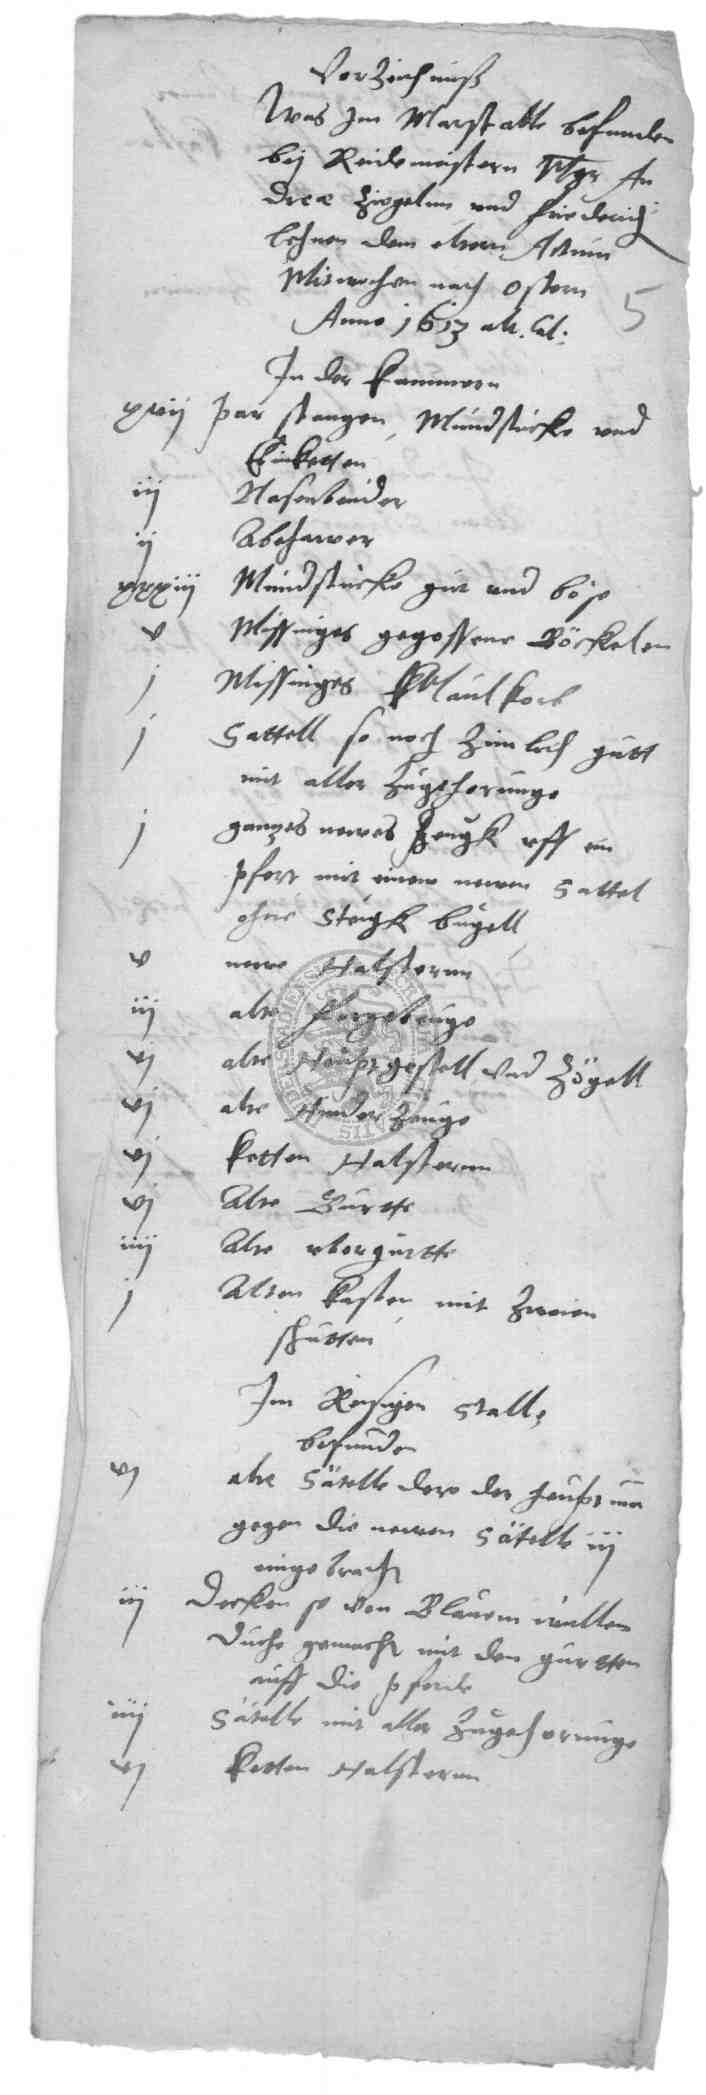 Vorzeichniß
Was Im Marstalle befunden
bej Reidemeistern An
dreæ Ziegelnn und Friederich
Lehnen dem eltern Actum
Mitwochen nach Ostern
Anno 1613
5
In der Kammern
xvij par stangen, Mundstücke und
Kinketten
iij Nasenbender
ij Abehawer
xxxiij Mundstücke gut und böse
v Missinges gegossene Böckelen
j Missinges Maulkorb
j Sattell so noch Zimlich gutt
mit aller Zugehorunge
j ganzes newes Zeugk uff ein
Pfert mit einem newen Sattel
ohne Steigk bugell
v newe Halfternn
iij alte Forgebeuge
vj alte Heuptgestell und Zögell
vj alte Hinder Zeuge
vj Ketten Halfternn
vj Alte Gurtte
iiij Alte obergurtte
j Alten Kasten mit Zweien
schutten
Im Reisigen Stalle
befunden
vj alte Sätelle dero der Heuptman
gegen die newen Sätelle iij
eingebracht
iij Decken so von Blauem wullen
Duche gemacht mit den gurtten
auff die Pferde
iiij Sätelle mit aller Zugehorunge
vj Ketten Halfternn